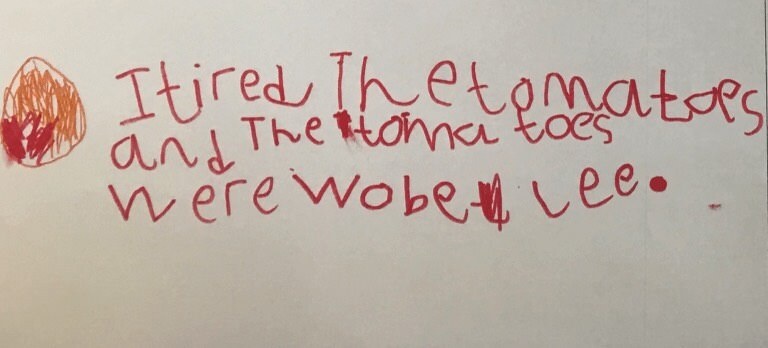 I tired The tomatoes
and The tomatoes
were wobe lee.